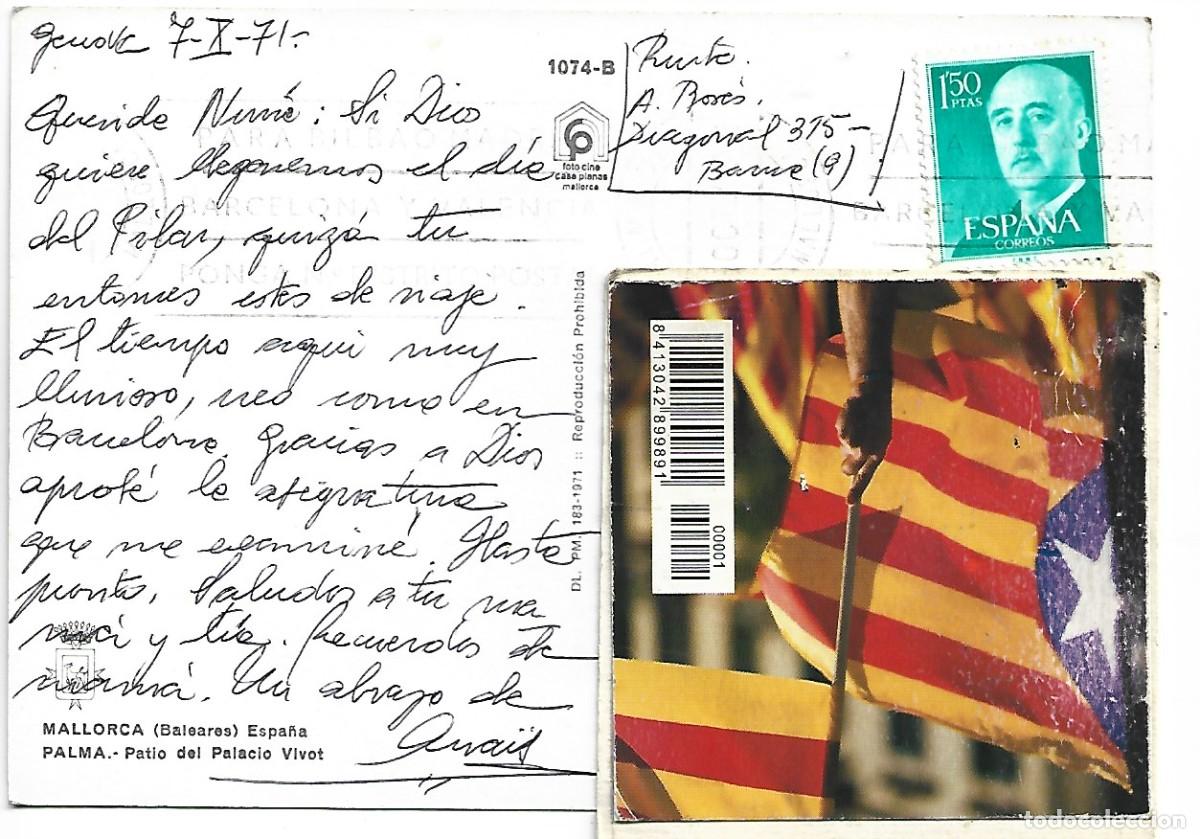 Genova 7-X-71.-
Querida Nuné: Si Dios
quiere llegaremos el día
del Pilar, quizá tu
entonces estés de viaje.
El tiempo aquí muy
lluvioso, no como en
Barcelona. Gracias a Dios
aprobé la asignatura
que me examiné. Hasta
pronto. Saludos a tu ma
má y tía. Recuerdos de
mamá. Un abrazo de
Anaïs
MALLORCA (Baleares) España
PALMA.- Patio del Palacio Vivot
1074-B
foto cine
casa planas
mallorca
DL. PM. 183-1971 :: Reproducción Prohibida
Rmte.
A. Rosés.
Diagonal 375-
Barna (9)
1'50
PTAS
ESPAÑA
CORREOS
PARA BILBAO MADRID
BARCELONA Y VALENCIA
PONGA EL DISTRITO POSTAL
8 413042 899891
00001
todocoleccion